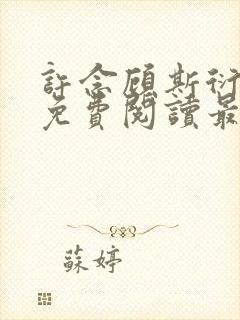 許念顧斯衍
免費閱讀最
蘇婷